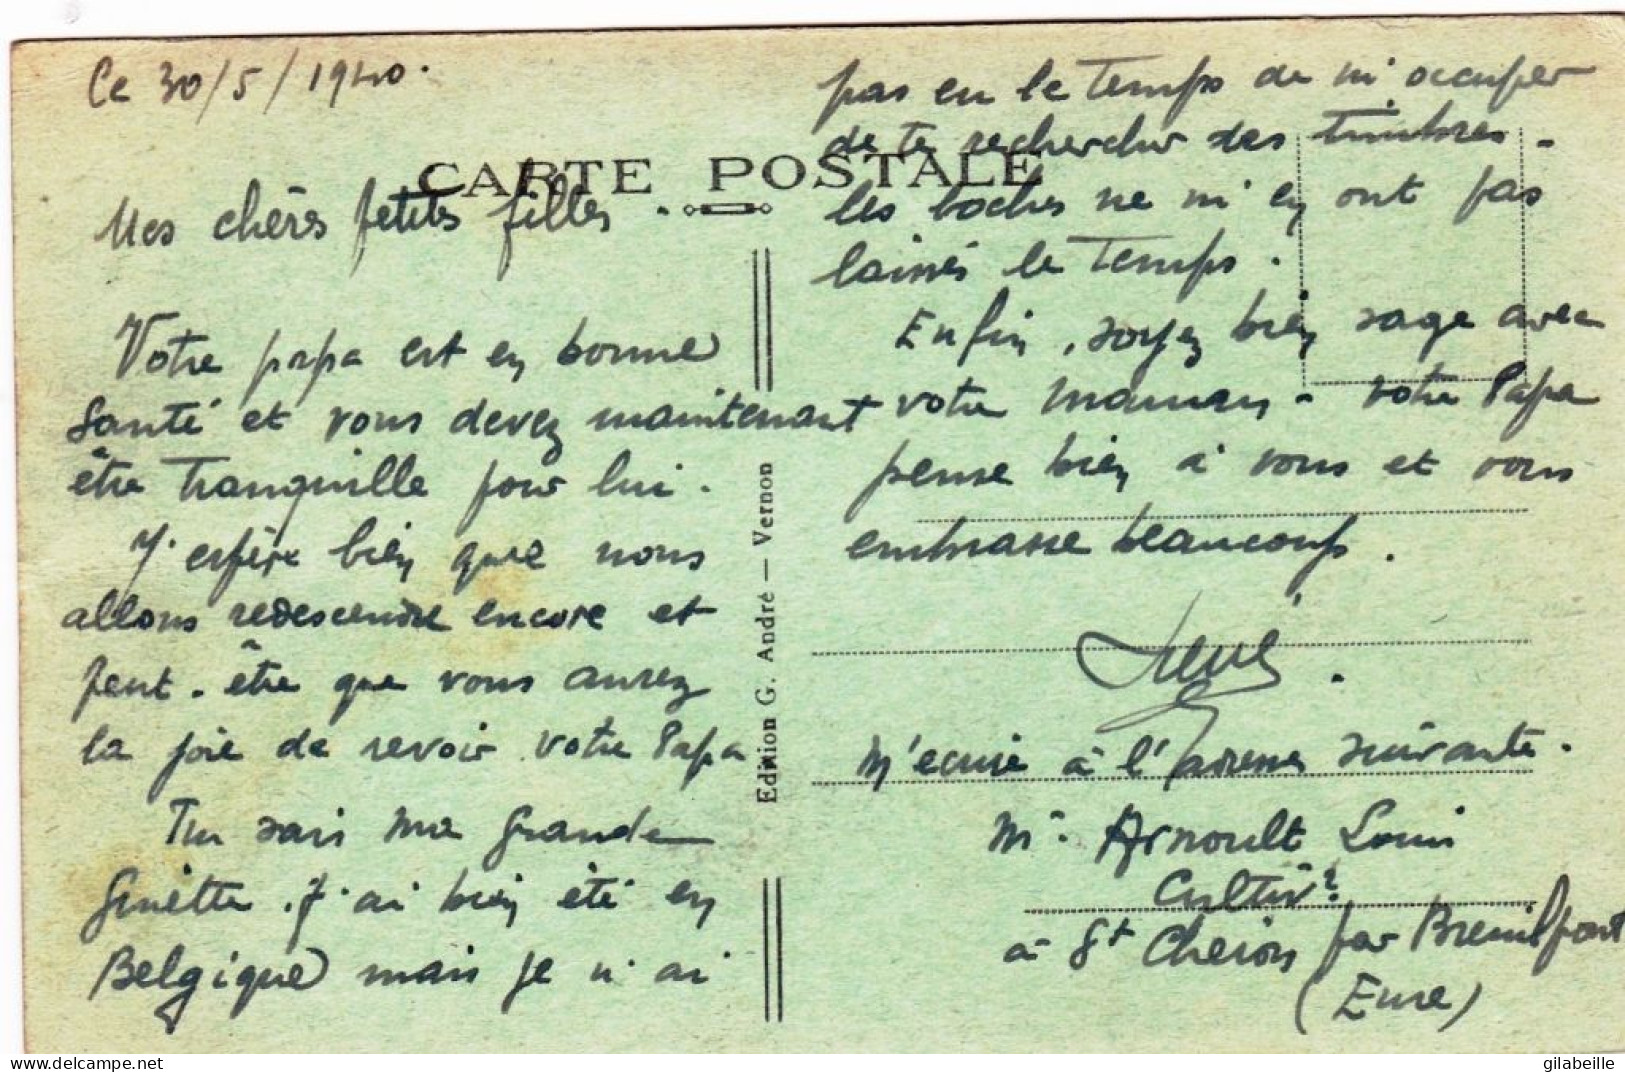 Ce 30/5/1940.
CARTE POSTALE
Mes chères petites filles.
Votre papa est en bonne
Santé et vous devez maintenant
être tranquille pour lui.
J'espère bien que nous
allons redescendre encore et
peut-être que vous aurez
la joie de revoir votre Papa
Tu sais ma grande
Ginette. J'ai bien été en
Belgique mais je n'ai
pas eu le temps de m'occuper
de te rechercher des timbres.
les boches ne m'en ont pas
laissés le temps.
Enfin, soyez bien sage avec
votre maman. votre Papa
pense bien à vous et vous
embrasse beaucoup.
René.
M'ecrire à l'adresse suivante.
Mr. Arnoult Louis
Cultivr
à St Cheron par Breuilpont
(Eure)
Edition G. André — Vernon
delcampe.net
gilabeille